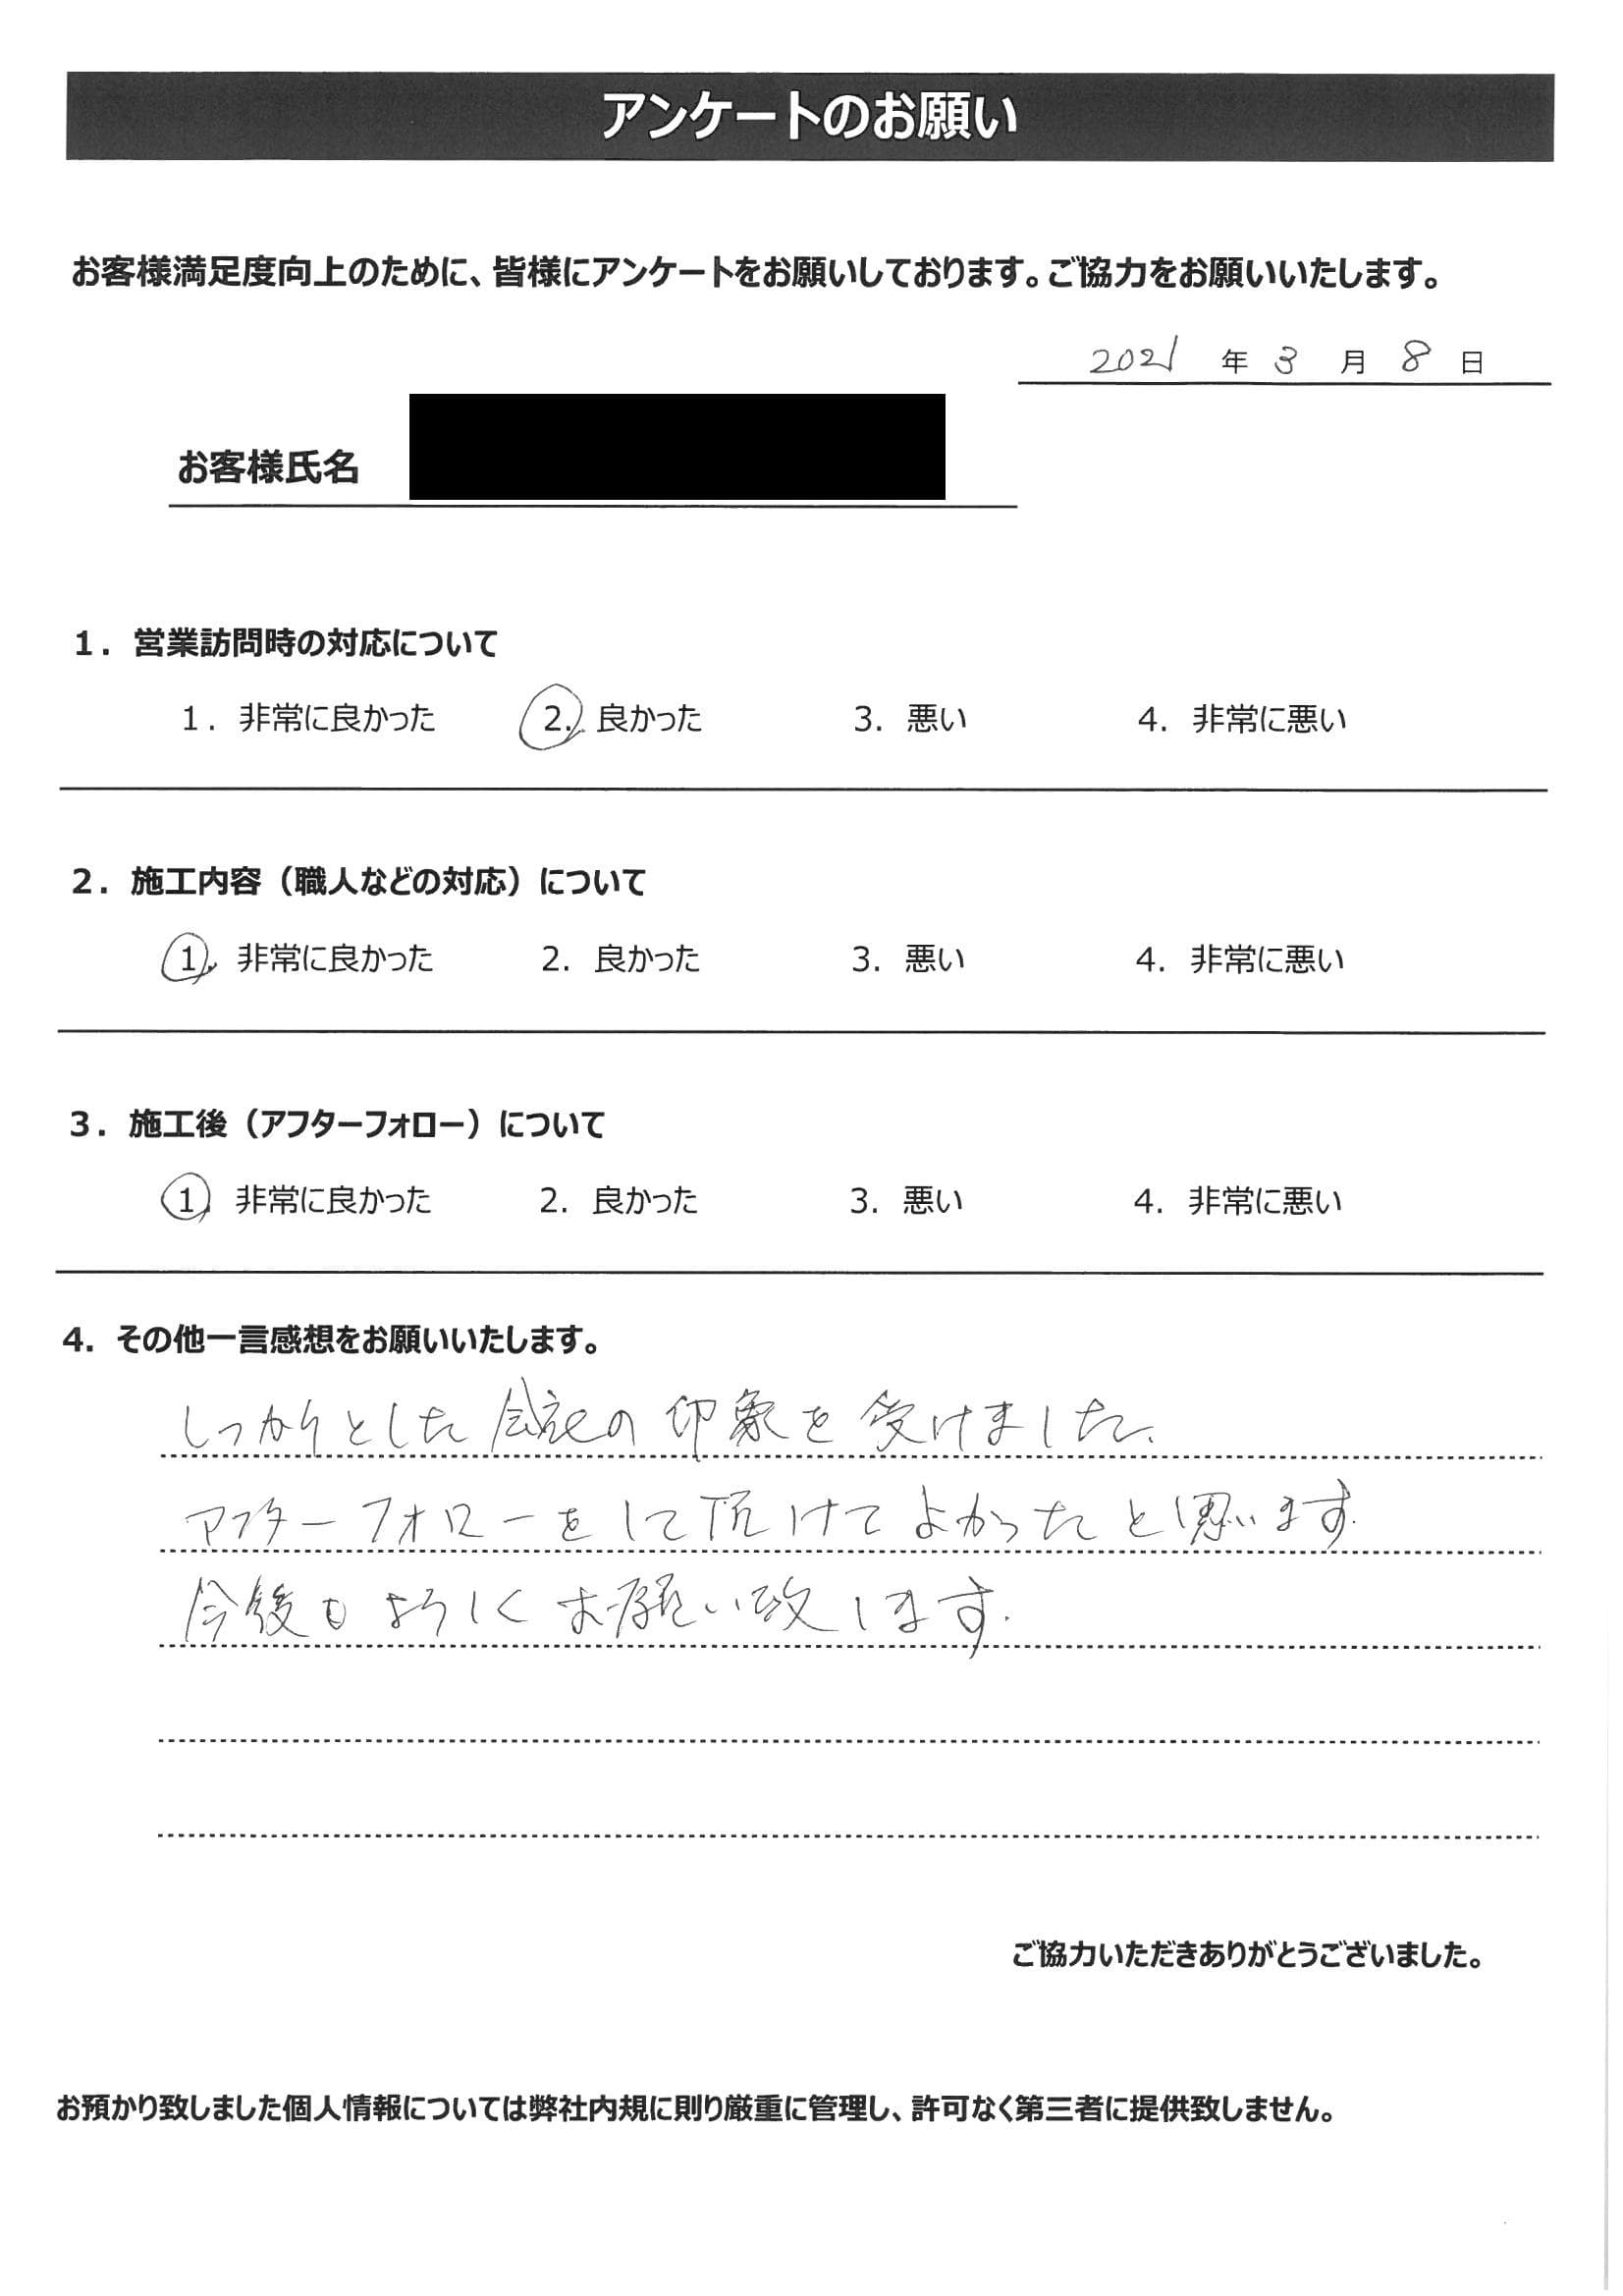 アンケートのお願い
お客様満足度向上のために、皆様にアンケートをお願いしております。ご協力をお願いいたします。
2021 年 3 月 8 日
お客様氏名
1. 営業訪問時の対応について
1. 非常に良かった 2. 良かった 3. 悪い 4. 非常に悪い
2. 施工内容（職人などの対応）について
1. 非常に良かった 2. 良かった 3. 悪い 4. 非常に悪い
3. 施工後（アフターフォロー）について
1. 非常に良かった 2. 良かった 3. 悪い 4. 非常に悪い
4. その他一言感想をお願いいたします。
しっかりとした会社の印象を受けました、
アフターフォローをして頂けてよかったと思います.
今後もよろしくお願い致します.
ご協力いただきありがとうございました。
お預かり致しました個人情報については弊社内規に則り厳重に管理し、許可なく第三者に提供致しません。